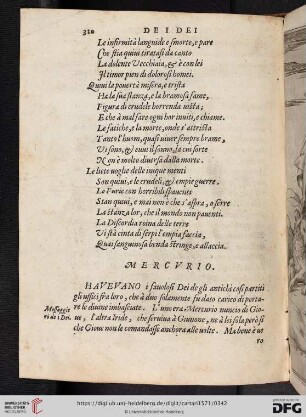 310 DE I DEI
Le infirmità languide e smorte, e pare
Che stia quiui tiratasi da canto
La dolente Vecchiaia, & è con lei
Il timor pien di dolorosi homei.
Quiui la pouertà misera, e trista
Ha la sua stanza, e la bramosa fame,
Figura di crudele horrenda uista;
E che à mal fare ogn'hor inuiti, e chiame.
Le fatiche, e la morte, onde s'attrista
Tanto l'huom, quasi uiuer sempre brame,
Vi sono, & euui il sonno, la cui sorte
Non è molto diuersa dalla morte.
Le liete uoglie delle inique menti
Son quiui, e le crudeli, & empie guerre.
Le Furie con horribili spauenti
Stan quiui, e mai non è che s'apra, o serre
La stanza lor, che il mondo non pauenti.
La Discordia roina delle terre
Vi stà cinta di serpi l'empia faccia,
Quai sanguinosa benda stringe, e allaccia.
MERCVRIO.
HAVEVANO i fauolosi Dei de gli antichi così partiti
gli ufficij fra loro, che à duo solamente fu dato carico di porta-
Messaggie
ri de i Dei.
re le diuine imbasciate. L'uno era Mercurio nuncio di Gio-
ue, l'altra Iride, che seruiua à Giunone, ne à lei sola però sì
che Gioue non le comandasse anchora alle uolte. Ma bene è ue
ro
UNIVERSITÄTS-
BIBLIOTHEK
HEIDELBERG
https://digi.ub.uni-heidelberg.de/diglit/cartari1571/0342
© Universitätsbibliothek Heidelberg